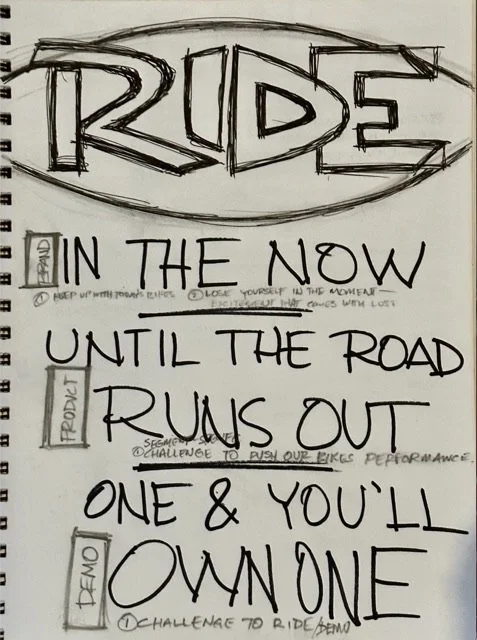 RIDE
BRAND IN THE NOW
① KEEP UP WITH TODAY'S BIKES ② LOSE YOURSELF IN THE MOMENT—
EXCITEMENT THAT COMES WITH LUST
UNTIL THE ROAD
PRODUCT RUNS OUT
SEGMENT
① CHALLENGE TO PUSH OUR BIKES PERFORMANCE.
ONE & YOU'LL
DEMO OWN ONE
① CHALLENGE TO RIDE/DEMO